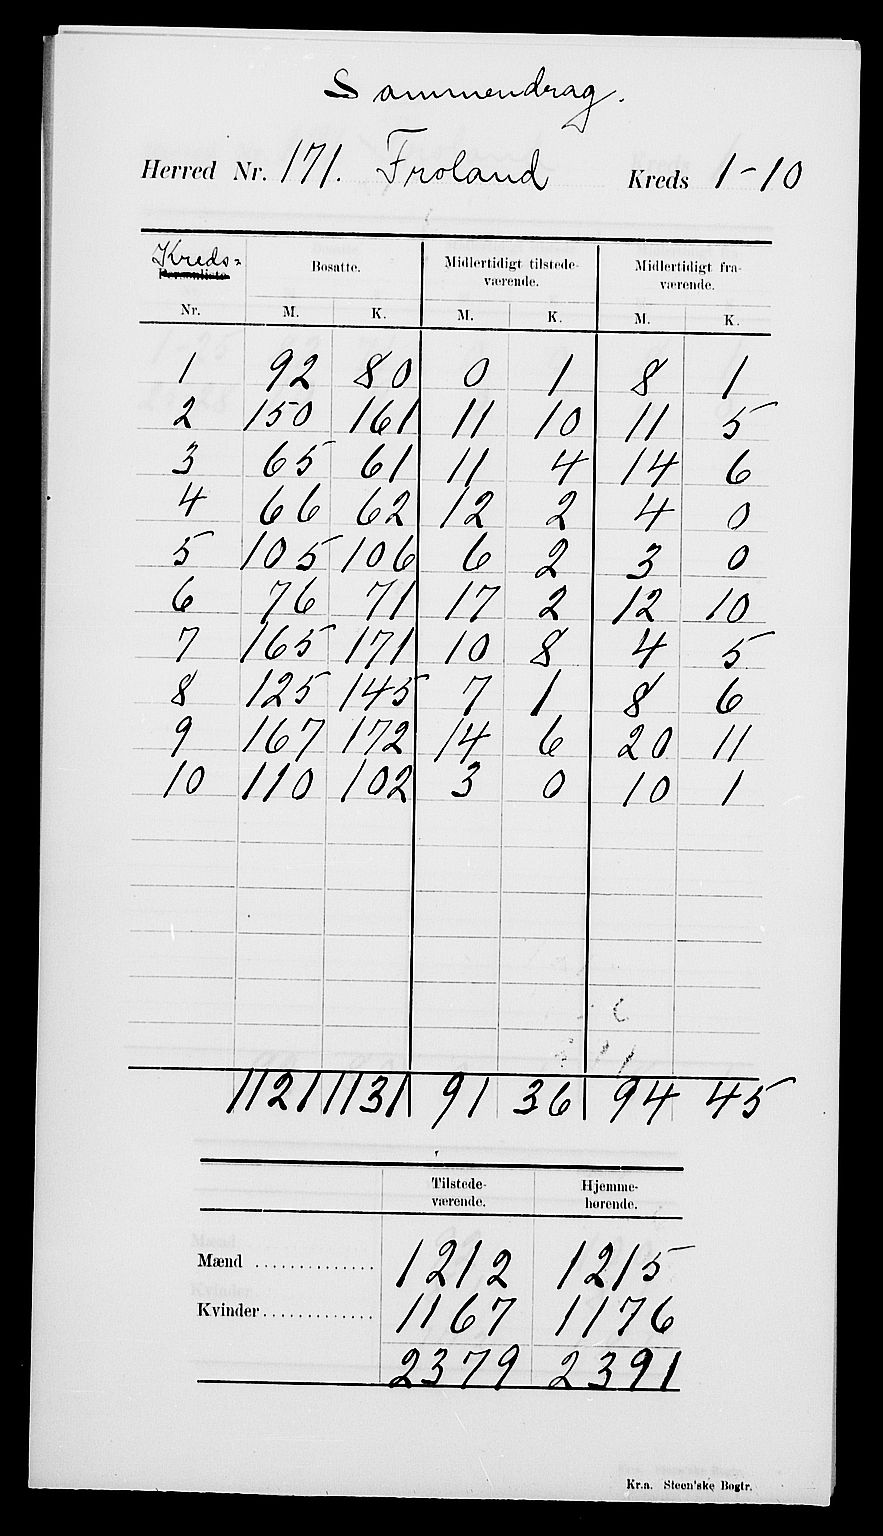 Sammendrag.
Herred Nr. 171. Froland Kreds 1-10
Kreds- Bosatte. Midlertidigt tilstede- Midlertidigt fra-
Personliste værende. værende.
Nr. M. K. M. K. M. K.
1 92 80 0 1 8 1
2 150 161 11 10 11 5
3 65 61 11 4 14 6
4 66 62 12 2 4 0
5 105 106 6 2 3 0
6 76 71 17 2 12 10
7 165 171 10 8 4 5
8 125 145 7 1 8 6
9 167 172 14 6 20 11
10 110 102 3 0 10 1
1121 1131 91 36 94 45
Tilstede- Hjemme-
værende. hørende.
Mænd .............. 1212 1215
Kvinder ............. 1167 1176
2379 2391
Kr.a. Steen'ske Bogtr.